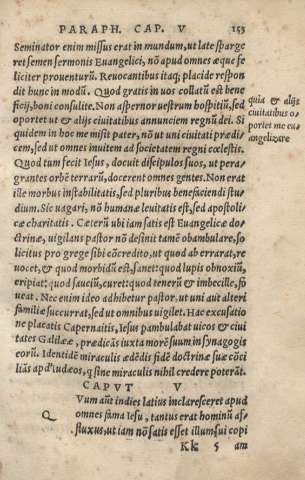 PARAPH. CAP. V 155
Seminator enim missus erat in mundum, ut late sparge
ret semen sermonis Euangelici, nõ apud omnes æque fe
liciter prouenturũ. Reuocantibus itaq; placide respon
dit hunc in modũ. Quod gratis in uos collatũ est bene
ficij, boni consulite. Non aspernor uestrum hospitiũ, sed
oportet ut & alijs ciuitatibus annunciem regnũ dei. Si
quidem in hoc me misit pater, nõ ut uni ciuitati prædi=
cem, sed ut omnes inuitem ad societatem regni cœlestis.
Quod tum fecit Iesus, docuit discipulos suos, ut pera=
grantes orbē terrarũ, docerent omnes gentes. Non erat
ille morbus instabilitatis, sed pluribus benefaciendi stu=
dium. Sic uagari, nõ humanæ leuitatis est, sed apostoli=
cæ charitatis. Cæterũ ubi iam satis est Euangelicæ do=
ctrinæ, uigilans pastor nõ desinit tamē obambulare, so
licitus pro grege sibi cõcredito, ut quod aberrarat, re
uocet, & quod morbidũ est, sanet: quod lupis obnoxiũ,
eripiat: quod sauciũ, curet: quod tenerũ & imbecille, fo
ueat. Nec enim ideo adhibetur pastor, ut uni aut alteri
familiæ succurrat, sed ut omnibus uigilet. Hac excusatio
ne placatis Capernaitis, Iesus pambulabat uicos & ciui
tates Galilææ, prædicãs iuxta morē suum in synagogis
eorũ. Identidē miraculis ædēdis fidē doctrinæ suæ cõci
liãs apd' iudæos, q sine miraculis nihil credere poterãt.
quia & alijs
ciuitatibus o-
portet me eu-
angelizare
CAPVT V
Vum aũt indies latius inclaresceret apud
Q omnes fama Iesu, tantus erat hominũ af=
fluxus, ut iam nõ satis esset illum, sui copi
Kk 5 am